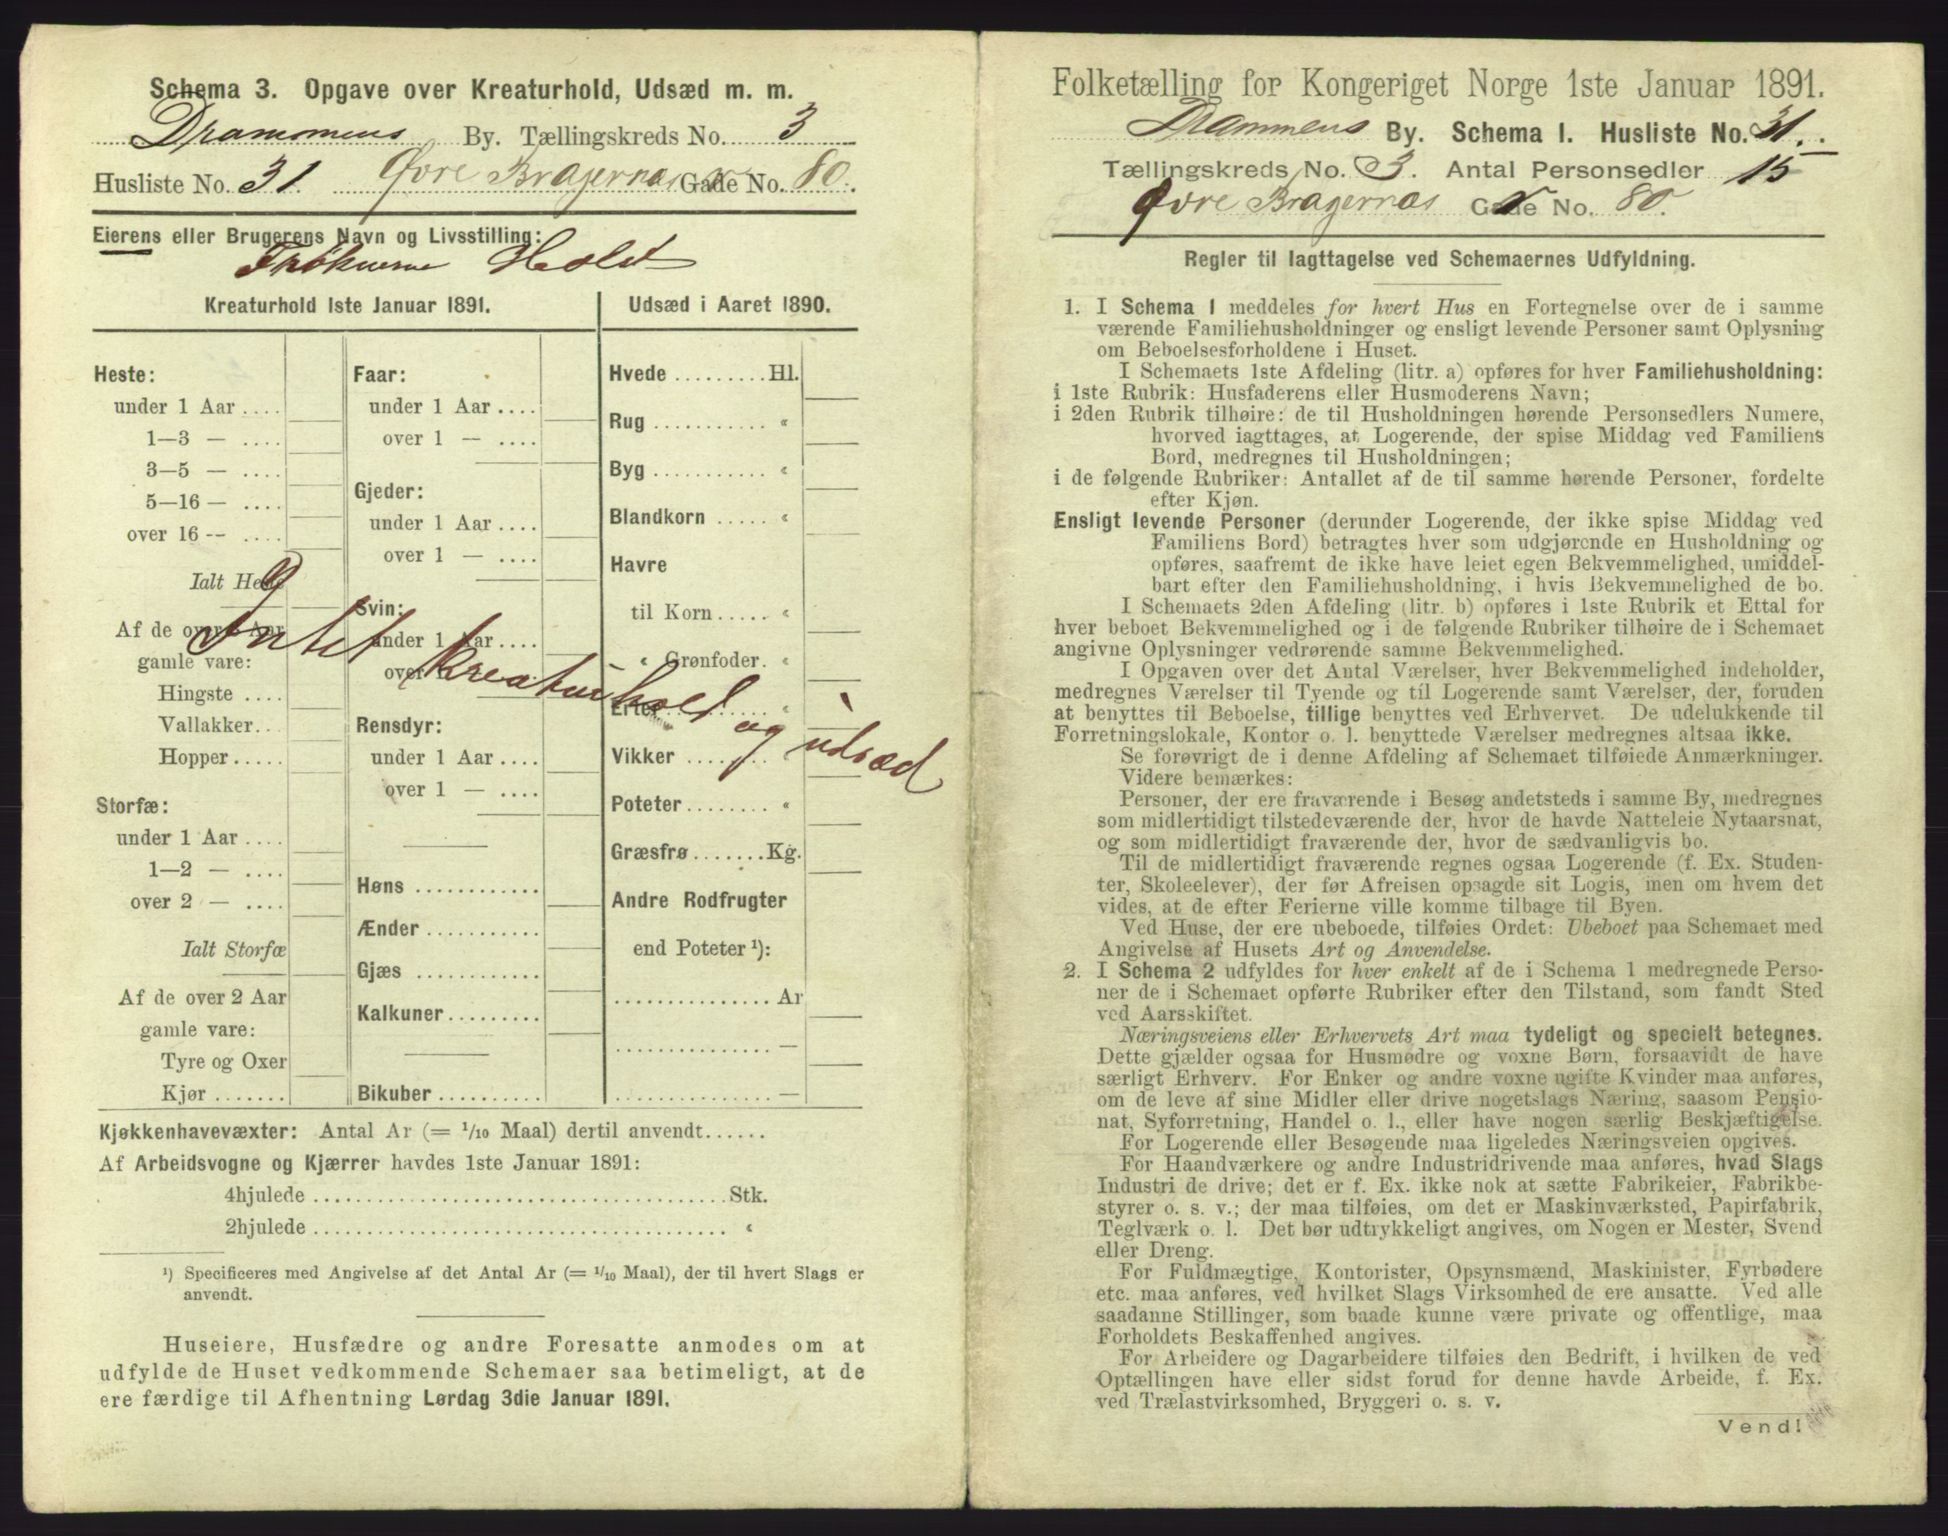 Schema 3. Opgave over Kreaturhold, Udsæd m. m.
Drammens By. Tællingskreds No. 3
Husliste No. 31. Øvre Bragernæs Gade No. 80.
Eierens eller Brugerens Navn og Livsstilling:
Frøknerne Holst
Kreaturhold 1ste Januar 1891.
Heste:
under 1 Aar ....
1—3 — ....
3—5 — ....
5—16 — ....
over 16 — ....
Ialt Heste
Af de over 5 Aar
gamle vare:
Hingste ....
Vallakker..
Hopper.....
Storfæ:
under 1 Aar ....
1—2 — ....
over 2 — ....
Ialt Storfæ
Af de over 2 Aar
gamle vare:
Tyre og Oxer
Kjør .......
Faar:
under 1 Aar ....
over 1 — ....
Gjeder:
under 1 Aar ....
over 1 — ....
Svin:
under 1 Aar ....
over 1
Rensdyr:
under 1 Aar ....
over 1 — ....
Høns ............
Ænder ...........
Gjæs ............
Kalkuner.........
Bikuber ..........
Udsæd i Aaret 1890.
Hvede .........Hl.
Rug ............ «
Byg ............ «
Blandkorn ...... «
Havre
til Korn..... «
« Grønfoder. «
Erter ........... «
Vikker ........
Poteter ........ «
Græsfrø.......Kg.
Andre Rodfrugter
end Poteter ¹):
............... Ar
............... —
............... —
Intet Kreaturhold og udsæd
Kjøkkenhavevæxter: Antal Ar (= 1/10 Maal) dertil anvendt......
Af Arbeidsvogne og Kjærrer havdes 1ste Januar 1891:
4hjulede ........................................Stk.
2hjulede ........................................ «
¹) Specificeres med Angivelse af det Antal Ar (= 1/10 Maal), der til hvert Slags er
anvendt.
Huseiere, Husfædre og andre Foresatte anmodes om at
udfylde de Huset vedkommende Schemaer saa betimeligt, at de
ere færdige til Afhentning Lørdag 3die Januar 1891.
Folketælling for Kongeriget Norge 1ste Januar 1891.
Drammens By. Schema 1. Husliste No. 31.
Tællingskreds No. 3. Antal Personsedler 15
Øvre Bragernæs Gade No. 80.
Regler til Iagttagelse ved Schemaernes Udfyldning.
1. I Schema 1 meddeles for hvert Hus en Fortegnelse over de i samme
værende Familiehusholdninger og ensligt levende Personer samt Oplysning
om Beboelsesforholdene i Huset.
I Schemaets 1ste Afdeling (litr. a) opføres for hver Familiehusholdning:
i 1ste Rubrik: Husfaderens eller Husmoderens Navn;
i 2den Rubrik tilhøire: de til Husholdningen hørende Personsedlers Numere,
hvorved iagttages, at Logerende, der spise Middag ved Familiens
Bord, medregnes til Husholdningen;
i de følgende Rubriker: Antallet af de til samme hørende Personer, fordelte
efter Kjøn.
Ensligt levende Personer (derunder Logerende, der ikke spise Middag ved
Familiens Bord) betragtes hver som udgjørende en Husholdning og
opføres, saafremt de ikke have leiet egen Bekvemmelighed, umiddel-
bart efter den Familiehusholdning, i hvis Bekvemmelighed de bo.
I Schemaets 2den Afdeling (litr. b) opføres i 1ste Rubrik et Ettal for
hver beboet Bekvemmelighed og i de følgende Rubriker tilhøire de i Schemaet
angivne Oplysninger vedrørende samme Bekvemmelighed.
I Opgaven over det Antal Værelser, hver Bekvemmelighed indeholder,
medregnes Værelser til Tyende og til Logerende samt Værelser, der, foruden
at benyttes til Beboelse, tillige benyttes ved Erhvervet. De udelukkende til
Forretningslokale, Kontor o. l. benyttede Værelser medregnes altsaa ikke.
Se forøvrigt de i denne Afdeling af Schemaet tilføiede Anmærkninger.
Videre bemærkes:
Personer, der ere fraværende i Besøg andetsteds i samme By, medregnes
som midlertidigt tilstedeværende der, hvor de havde Natteleie Nytaarsnat,
og som midlertidigt fraværende der, hvor de sædvanligvis bo.
Til de midlertidigt fraværende regnes ogsaa Logerende (f. Ex. Studen-
ter, Skoleelever), der før Afreisen opsagde sit Logis, men om hvem det
vides, at de efter Ferierne ville komme tilbage til Byen.
Ved Huse, der ere ubeboede, tilføies Ordet: Ubeboet paa Schemaet med
Angivelse af Husets Art og Anvendelse.
2. I Schema 2 udfyldes for hver enkelt af de i Schema 1 medregnede Perso-
ner de i Schemaet opførte Rubriker efter den Tilstand, som fandt Sted
ved Aarsskiftet.
Næringsveiens eller Erhvervets Art maa tydeligt og specielt betegnes.
Dette gjælder ogsaa for Husmødre og voxne Børn, forsaavidt de have
særligt Erhverv. For Enker og andre voxne ugifte Kvinder maa anføres,
om de leve af sine Midler eller drive nogetslags Næring, saasom Pensio-
nat, Syforretning, Handel o. l., eller have nogen særlig Beskjæftigelse.
For Logerende eller Besøgende maa ligeledes Næringsveien opgives.
For Haandværkere og andre Industridrivende maa anføres, hvad Slags
Industri de drive; det er f. Ex. ikke nok at sætte Fabrikeier, Fabrikbe-
styrer o. s. v.; der maa tilføies, om det er Maskinværksted, Papirfabrik,
Teglværk o. l. Det bør udtrykkeligt angives, om Nogen er Mester, Svend
eller Dreng.
For Fuldmægtige, Kontorister, Opsynsmænd, Maskinister, Fyrbødere
etc. maa anføres, ved hvilket Slags Virksomhed de ere ansatte. Ved alle
saadanne Stillinger, som baade kunne være private og offentlige, maa
Forholdets Beskaffenhed angives.
For Arbeidere og Dagarbeidere tilføies den Bedrift, i hvilken de ved
Optællingen have eller sidst forud for denne havde Arbeide, f. Ex.
ved Trælastvirksomhed, Bryggeri o. s. v.
Vend!